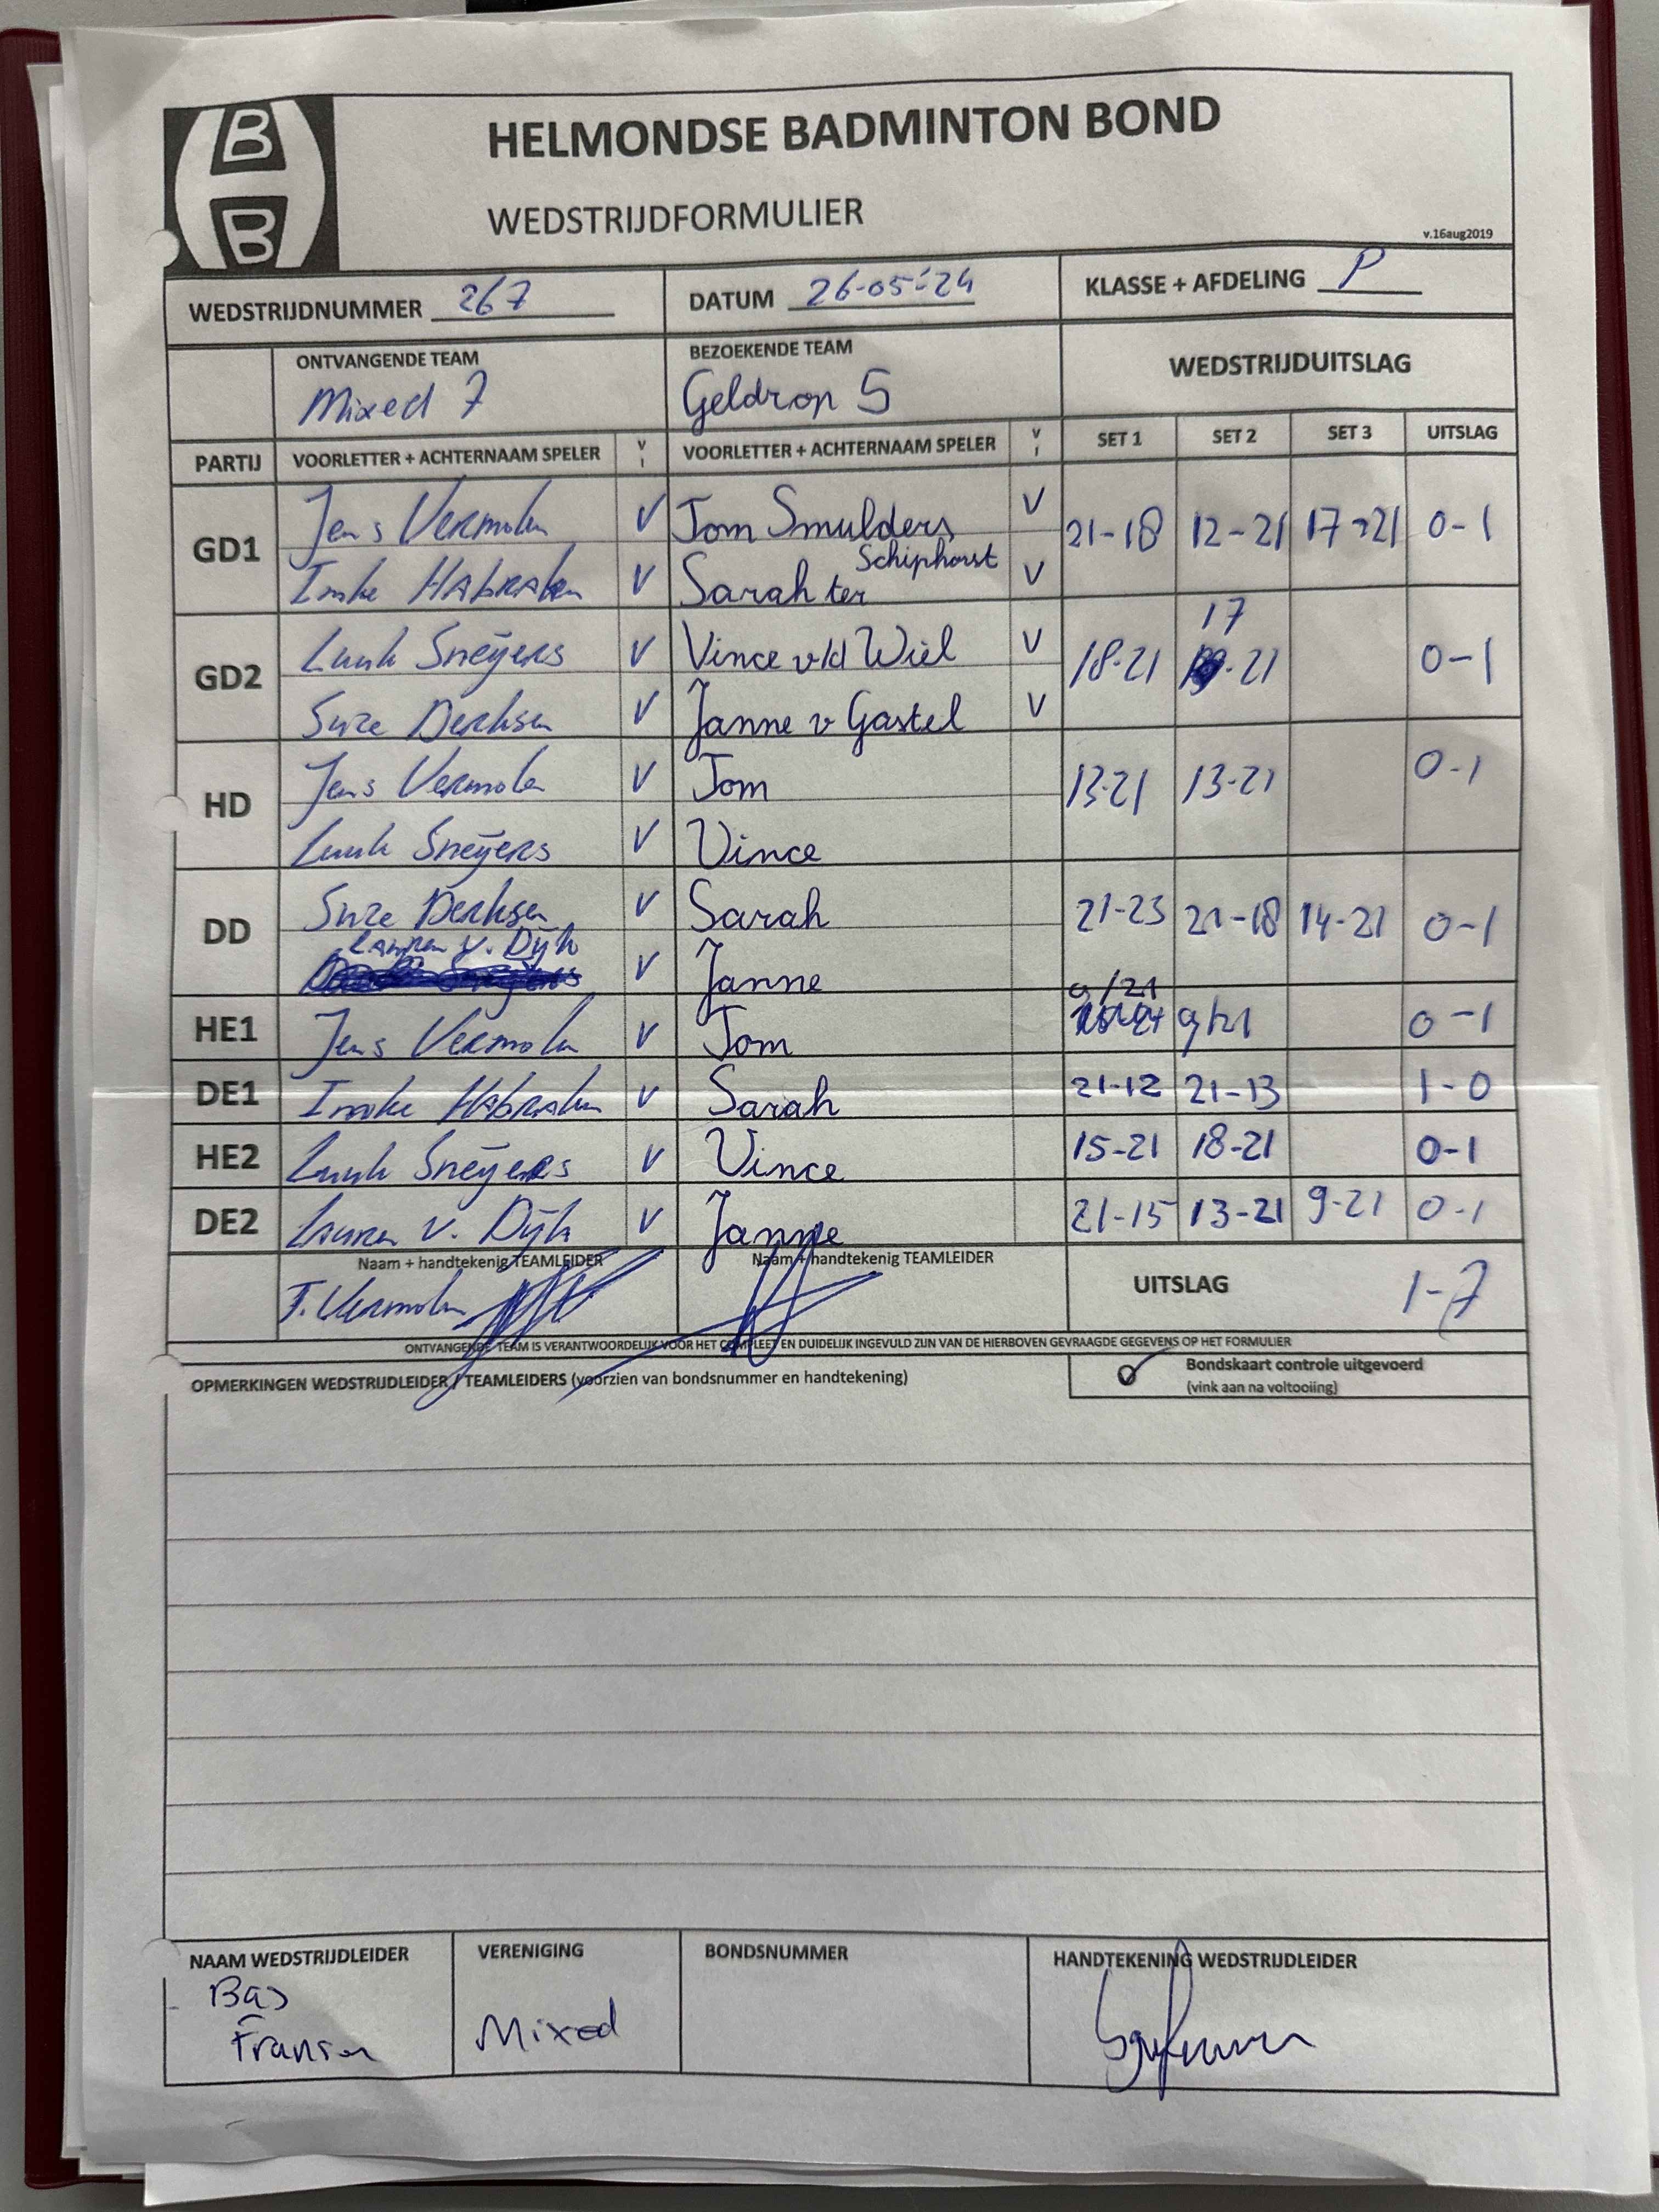 B
B
HELMONDSE BADMINTON BOND
WEDSTRIJDFORMULIER
v.16aug2019
WEDSTRIJDNUMMER 267 DATUM 26-05-'24 KLASSE + AFDELING P
ONTVANGENDE TEAM BEZOEKENDE TEAM WEDSTRIJDUITSLAG
Mixed 7 Geldrop 5
PARTIJ VOORLETTER + ACHTERNAAM SPELER V I VOORLETTER + ACHTERNAAM SPELER V I SET 1 SET 2 SET 3 UITSLAG
GD1 Jens Vermolen V Tom Smulders V 21-18 12-21 17-21 0-1
Imke Habraken V Sarah ter Schiphorst V
GD2 Luuk Sneijers V Vince v/d Wiel V 18-21 17-21 0-1
Suze Derksen V Janne v Gastel V
HD Jens Vermolen V Tom 13-21 13-21 0-1
Luuk Sneijers V Vince
DD Suze Derksen V Sarah 21-23 21-18 14-21 0-1
Lauren v. Dijk V Janne
HE1 Jens Vermolen V Tom 9/21 9/21 0-1
DE1 Imke Habraken V Sarah 21-12 21-13 1-0
HE2 Luuk Sneijers V Vince 15-21 18-21 0-1
DE2 Lauren v. Dijk V Janne 21-15 13-21 9-21 0-1
Naam + handtekenig TEAMLEIDER Naam + handtekenig TEAMLEIDER UITSLAG 1-7
J. Vermolen
ONTVANGENDE TEAM IS VERANTWOORDELIJK VOOR HET COMPLEET EN DUIDELIJK INGEVULD ZIJN VAN DE HIERBOVEN GEVRAAGDE GEGEVENS OP HET FORMULIER
OPMERKINGEN WEDSTRIJDLEIDER / TEAMLEIDERS (voorzien van bondsnummer en handtekening)
Bondskaart controle uitgevoerd
(vink aan na voltooiing)
NAAM WEDSTRIJDLEIDER VERENIGING BONDSNUMMER HANDTEKENING WEDSTRIJDLEIDER
Bas
Fransen Mixed